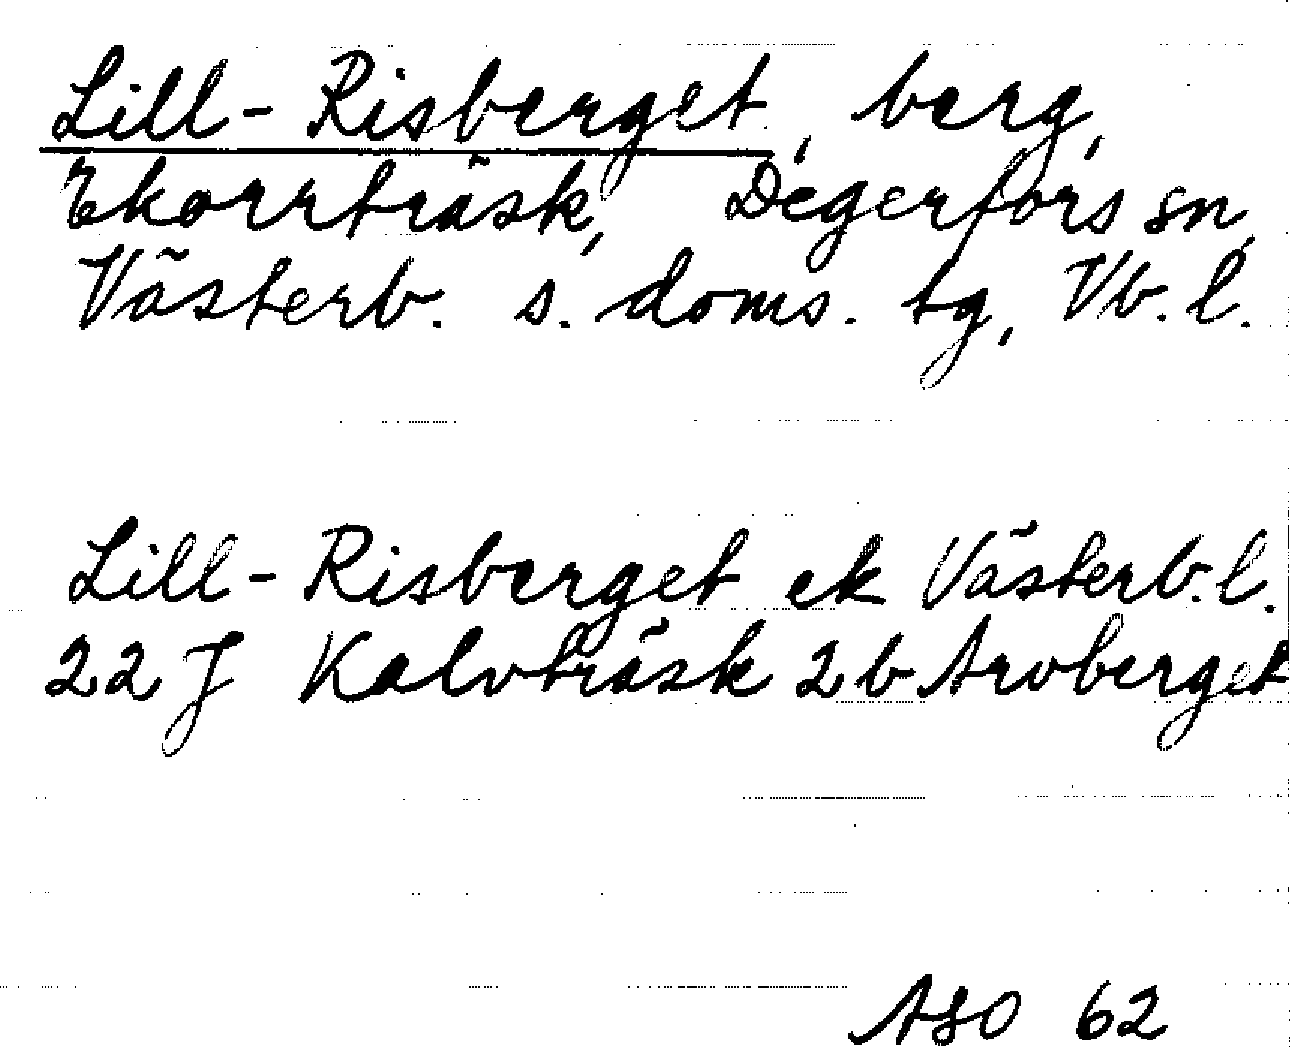 Lill-Risberget, berg,
Ekorrträsk, Degerfors sn,
Västerb. s. doms. tg, Vb. l.
Lill-Risberget ek Västerb. l.
22 J Kalvträsk 2 b Arvberget
ASO 62